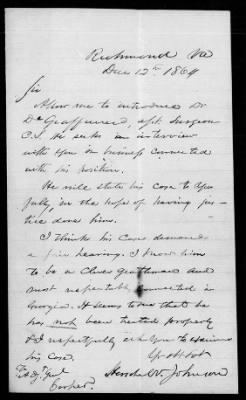 Richmond Va
Dec 12th 1864
Sir
Allow me to introduce Dr
De Graffenreid, asst. Surgeon
C.S. He seeks an interview
with you on business connected
with his position.
He will state his case to you
fully, in the hope of having jus-
tice done him.
I think his case demands
a fair hearing. I know him
to be a clever gentleman and
most respectably connected in
Georgia. It seems to me that he
has not been treated properly
& I respectfully ask you to examine
his case.
Yr obt svt
Herschel V. Johnson
To Adjt Genl
Cooper.